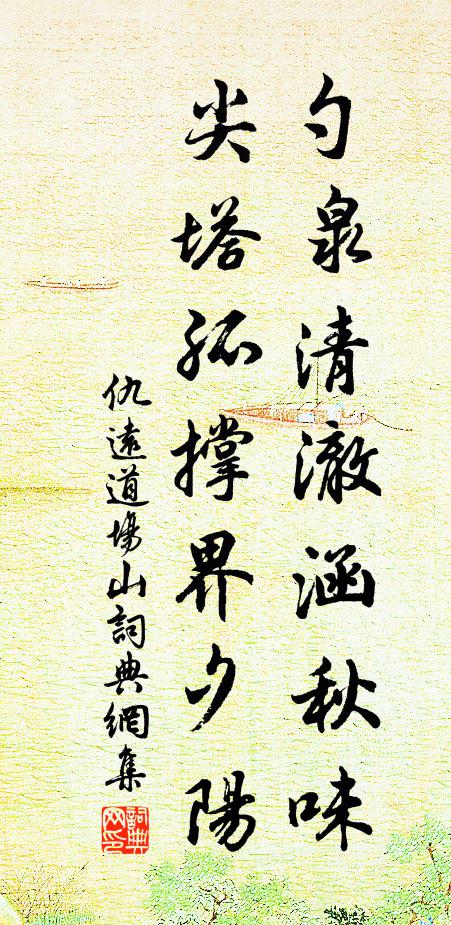 勺泉清澈涵秋味
尖塔孤撐界夕陽
仇遠道場山詞典網集
詞典網印